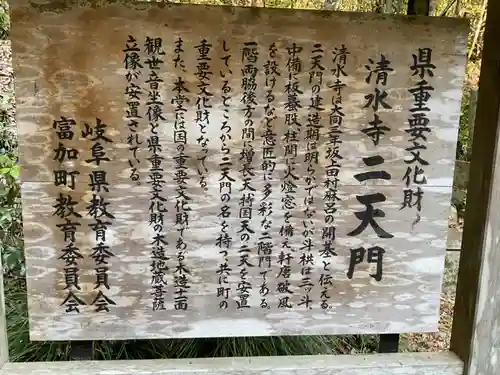 県重要文化財
清水寺二天門
清水寺は大同三年坂上田村麻呂の開基と伝える。
二天門の建造期は明らかではないが斗栱は三ッ斗、
中備に板蟇股、柱間に火燈窓を備え軒唐破風
を設けるなど意匠的に多彩な二階門である。
一階両脇後方の間に増長天持国天の二天を安置
しているところから二天門の名を持つ。共に町の
重要文化財となっている。
また、本堂には国の重要文化財である木造十一面
観世音坐像と県重要文化財の木造地蔵菩薩
立像が安置されている。
岐阜県教育委員会
富加町教育委員会